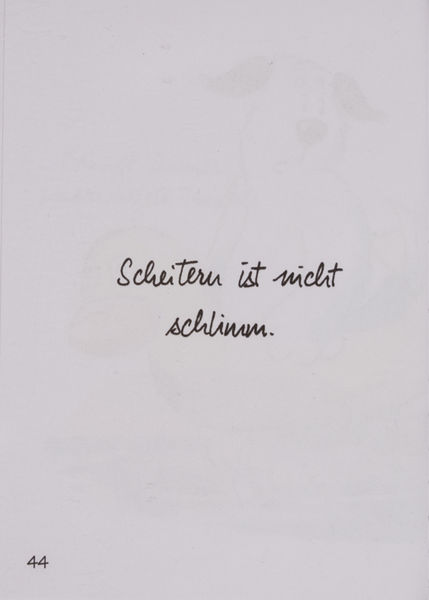 Scheitern ist nicht
schlimm.
44